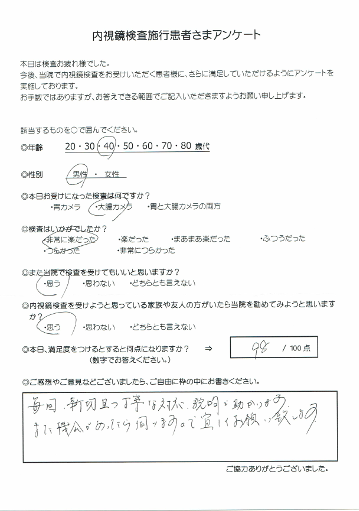 内視鏡検査施行患者さまアンケート
本日は検査お疲れ様でした。
今後、当院で内視鏡検査をお受けいただく患者様に、さらに満足していただけるようにアンケートを
実施しております。
お手数ではありますが、お答えできる範囲でご記入いただきますようお願い申し上げます。
該当するものを○で囲んでください。
◎年齢 20・30・40・50・60・70・80 歳代
◎性別 男性 ・ 女性
◎本日お受けになった検査は何ですか？
・胃カメラ ・大腸カメラ ・胃と大腸カメラの両方
◎検査はいかがでしたか？
・非常に楽だった ・楽だった ・まあまあ楽だった ・ふつうだった
・つらかった ・非常につらかった
◎また当院で検査を受けてもいいと思いますか？
・思う ・思わない ・どちらとも言えない
◎内視鏡検査を受けようと思っている家族や友人の方がいたら当院を勧めてみようと思います
か？
・思う ・思わない ・どちらとも言えない
◎本日、満足度をつけるとすると何点になりますか？ ⇒ 98 / 100 点
（数字でお答えください。）
◎ご感想やご意見などございましたら、ご自由に枠の中にお書きください。
毎回、親切且つ丁寧な対応、説明で助かります。
また機会があったら伺いますので宜しくお願い致します
ご協力ありがとうございました。